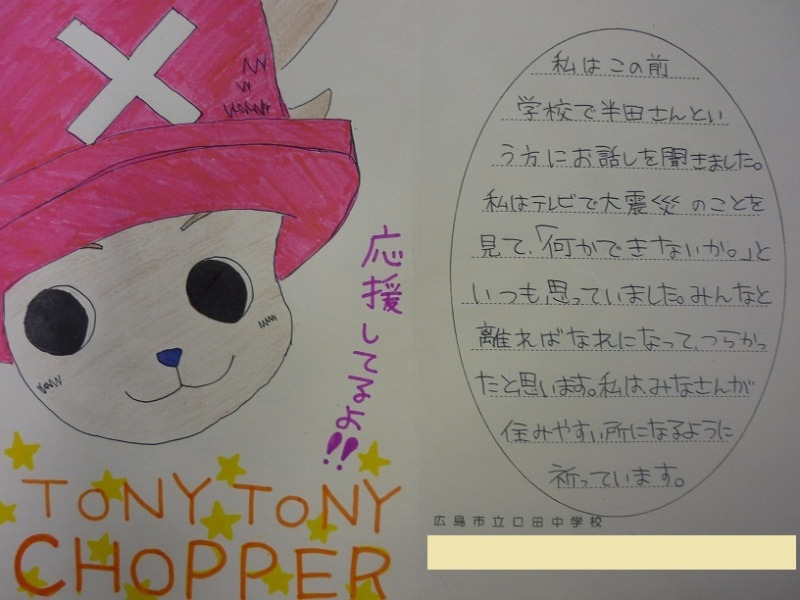 応援してるよ!!
TONY TONY
CHOPPER
私はこの前
学校で半田さんとい
う方にお話しを聞きました。
私はテレビで大震災のことを
見て、「何かできないか。」と
いつも思っていました。みんなと
離ればなれになって、つらかっ
たと思います。私はみなさんが
住みやすい所になるように
祈っています。
広島市立口田中学校